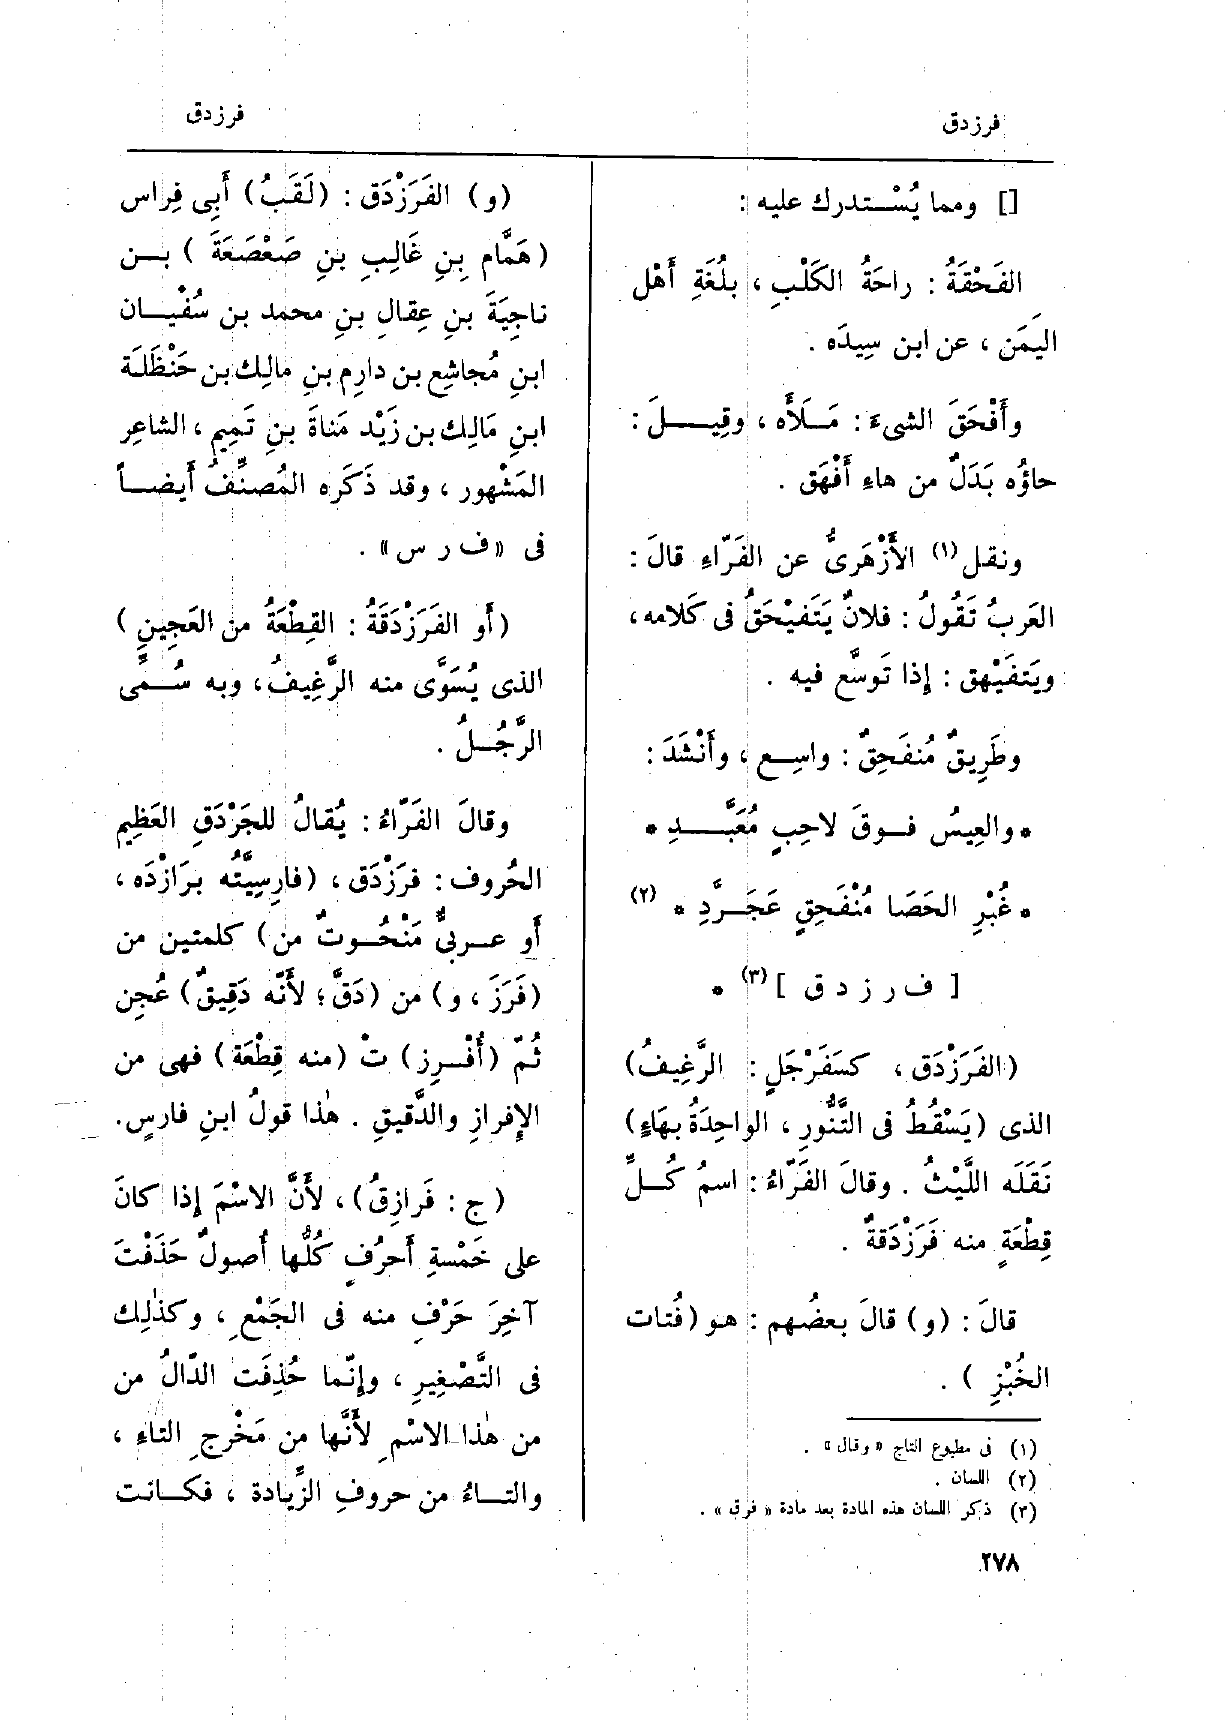 فرزدق
فرزدق
[] ومما يُسْتدرك عليه :
الفَحْقَةُ : راحَةُ الكَلْبِ ، بلُغَةِ أَهْل
اليَمَن ، عن ابن سِيدَه .
وأَفْحَقَ الشىءَ : مَلَأَه ، وقِيلَ :
حاؤُه بَدَلٌ من هاءِ أَفْهَق .
ونقل (١) الأَزْهَرِىُّ عن الفَرّاءِ قالَ :
العَربُ تَقُولُ : فلانٌ يَتَفَيْحَقُ فى كَلامه ،
ويَتفَيْهق : إذا تَوسَّع فيه .
وطَرِيقٌ مُنفَحِقٌ : واسِع ، وأَنْشَدَ :
* والعِيسُ فوقَ لاحِبٍ مُعَبَّدِ *
* غُبْرِ الحَصَا مُنْفَحِقٍ عَجَرَّدِ * (٢)
[ ف ر ز د ق ] (٣) *
(الفَرَزْدَق ، كسَفَرْجَلٍ : الرَّغِيفُ)
الذى (يَسْقُطُ فى التَّنُّورِ ، الواحِدَةُ بهَاءٍ)
نَقَلَه اللَّيْثُ . وقالَ الفَرّاءُ : اسمُ كُلِّ
قِطْعَةٍ منه فَرَزْدَقةٌ .
قالَ : (و) قالَ بعضُهم : هو (فُتات
الخُبْزِ ) .
(١) فى مطبوع التاج « وقال » .
(٢) اللسان .
(٣) ذكر اللسان هذه المادة بعد مادة « فرق » .
٢٧٨
(و) الفَرَزْدَق : (لَقَبُ) أَبِى فِراس
( هَمَّام بنِ غَالِبِ بنِ صَعْصَعَةَ ) بن
ناجِيَةَ بنِ عِقالِ بنِ محمد بن سُفْيان
ابنِ مُجاشِع بن دارِم بنِ مالِك بن حَنْظَلَة
ابنِ مَالِك بن زَيْد مَناةَ بنِ تَمِيم ، الشاعِر
المَشْهور ، وقد ذَكَره المُصنِّفُ أَيضاً
فى «ف ر س» .
(أَو الفَرَزْدَقَةُ : القِطْعَةُ من العَجِينِ )
الذى يُسَوَّى منه الرَّغِيفُ ، وبه سُمِّى
الرَّجُلُ .
وقالَ الفَرّاءُ : يُقالُ للجَرْدَقِ العَظِيم
الحُروف : فَرَزْدَق ، (فارِسِيَّتُه برَازْدَه ،
أَو عربىٌّ مَنْحُوتٌ من) كلمتين من
(فَرَزَ ، و) من (دَقَّ ؛ لأَنّه دَقِيقٌ) عُجِن
ثُمّ (أُفْرِز) تْ (منه قِطْعَة) فهى من
الإفرازِ والدَّقيقِ . هٰذا قولُ ابنِ فارِسٍ.
( ج : فَرازِقُ) ، لأَنَّ الاسْمَ إذا كانَ
على خَمْسةِ أَحرُفٍ كُلُّها أُصولٌ حَذَفْتَ
آخِرَ حَرْفٍ منه فى الجَمْعِ ، وكذٰلِك
فى التَّصْغِيرِ ، وإنّما حُذِفَت الدّالُ من
من هٰذا الاسْمِ لأَنَّها من مَخْرجِ التاءِ ،
والتاءُ من حروفِ الزِّيادة ، فكانت